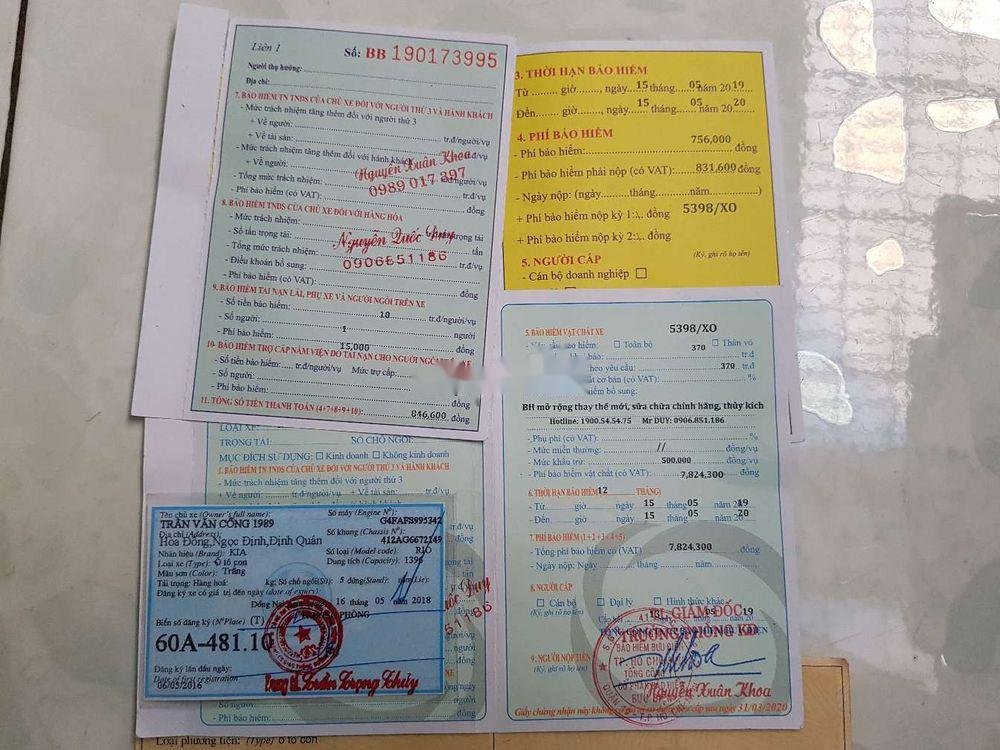 Liên 1
Số: BB 190173995
Người thụ hưởng:
Địa chỉ:
7. BẢO HIỂM TN TNDS CỦA CHỦ XE ĐỐI VỚI NGƯỜI THỨ 3 VÀ HÀNH KHÁCH
- Mức trách nhiệm tăng thêm đối với người thứ 3
+ Về người: tr.đ/người/vụ
+ Về tài sản: tr.đ/vụ
- Mức trách nhiệm tăng thêm đối với hành khách
+ Về người: người/vụ
Nguyễn Xuân Khoa
0989 017 397
- Tổng mức trách nhiệm: tr.đ/vụ
- Phí bảo hiểm (có VAT): đồng
8. BẢO HIỂM TNDS CỦA CHỦ XE ĐỐI VỚI HÀNG HÓA
- Mức trách nhiệm: trọng tải
- Số tấn trọng tải: tấn
Nguyễn Quốc Duy
0906851186
- Tổng mức trách nhiệm: tr.đ/vụ
- Điều khoản bổ sung:
- Phí bảo hiểm (có VAT): đồng
9. BẢO HIỂM TAI NẠN LÁI, PHỤ XE VÀ NGƯỜI NGỒI TRÊN XE
- Số tiền bảo hiểm: 10 tr.đ/người/vụ
- Số người: 1 người
- Phí bảo hiểm: 15,000 đồng
10- BẢO HIỂM TRỢ CẤP NẰM VIỆN DO TAI NẠN CHO NGƯỜI NGỒI
- Số tiền bảo hiểm: tr.đ/người/vụ Mức trợ cấp:
- Số người:
- Phí bảo hiểm: đồng
11. TỔNG SỐ TIỀN THANH TOÁN (4+7+8+9+10): 846,600 đồng
3. THỜI HẠN BẢO HIỂM
Từ ........ giờ......., ngày 15 tháng 05 năm 2019
Đến ....... giờ......., ngày 15 tháng 05 năm 2020
4. PHÍ BẢO HIỂM
- Phí bảo hiểm: 756,000 đồng
- Phí bảo hiểm phải nộp (có VAT): 831,600 đồng
- Ngày nộp: (ngày.......tháng.......năm............)
+ Phí bảo hiểm nộp kỳ 1: đồng 5398/XO
+ Phí bảo hiểm nộp kỳ 2: đồng
(Ký, ghi rõ họ tên)
5. NGƯỜI CẤP
- Cán bộ doanh nghiệp
LOẠI XE:
TRỌNG TẢI: SỐ CHỖ NGỒI:
MỤC ĐÍCH SỬ DỤNG: Kinh doanh Không kinh doanh
1. BẢO HIỂM TN TNDS CỦA CHỦ XE ĐỐI VỚI NGƯỜI THỨ 3 VÀ HÀNH KHÁCH
- Mức trách nhiệm tăng thêm đối với người thứ 3
+ Về người: tr.đ/người/vụ + Về tài sản: tr.đ/vụ
Tên chủ xe (Owner's full name):
TRẦN VĂN CÔNG 1989
Số máy (Engine Nº):
G4FAFS995342
Địa chỉ (Address):
Hòa Đồng,Ngọc Định,Định Quán
Số khung (Chassis Nº):
412AG6672149
Nhãn hiệu (Brand): KIA
Số loại (Model code): RIO
Loại xe (Type): Ô tô con
Dung tích (Capacity): 1396
Màu sơn (Color): Trắng
Tải trọng: Hàng hoá: kg; Số chỗ ngồi(Sit): 5 đứng(Stand):
Đăng ký xe có giá trị đến ngày (date of expiry):
Đồng Nai 16 tháng 05 năm 2018
PHÒNG
Biển số đăng ký (NºPlate) (T)
60A-481.10
Đăng ký lần đầu ngày:
Date of first registration
06/05/2016
Trần Trọng Thủy
Quốc Duy
51186
- Phí bảo hiểm: đồng
5. BẢO HIỂM VẬT CHẤT XE 5398/XO
bảo hiểm: Toàn bộ 370 Thân vỏ
tr.đ
theo yêu cầu: 370 tr.đ
cơ bản (có VAT): %
bổ sung:
BH mở rộng thay thế mới, sửa chữa chính hãng, thủy kích
Hotline: 1900.54.54.75 Mr DUY: 0906.851.186
- Phụ phí (có VAT): %
- Mức miễn thường: // đồng/vụ
- Mức khấu trừ: 500,000 đồng/vụ
- Phí bảo hiểm vật chất (có VAT): 7,824,300 đồng
6. THỜI HẠN BẢO HIỂM 12 THÁNG)
- Từ giờ ngày 15 tháng 05 năm 2019
- Đến giờ ngày 15 tháng 05 năm 2020
7. PHÍ BẢO HIỂM (1+2+3+4+5)
- Tổng phí bảo hiểm (có VAT): 7,824,300 đồng
- Ngày nộp: Ngày tháng năm
8. NGƯỜI CẤP
Cán bộ Đại lý Hình thức khác
(Ký, ghi rõ họ tên)
05 19
TL. GIÁM ĐỐC
TRƯỞNG PHÒNG KD
BẢO HIỂM BƯU ĐIỆN
TP. HỒ CHÍ
TỔNG CÔNG
9. NGƯỜI NỘP TIỀN
(Ký, ghi rõ họ tên)
CỔ PHẦN BẢO HIỂM
BƯU ĐIỆN
Nguyễn Xuân Khoa
Giấy chứng nhận này không có giá trị sử dụng nếu cấp sau ngày 31/03/2020
Loại phương tiện: (Type) ô tô con